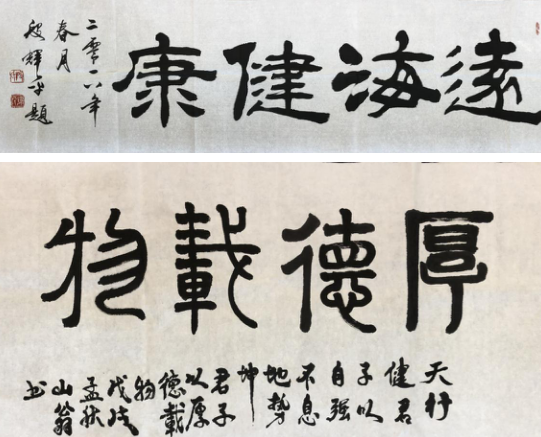 遠海健康
二零一八年
春月
題
厚德載物
天行
健君
子以
自强
不息
地势
坤
君子
以厚
德載
物
戊戌
孟秋
山翁
书